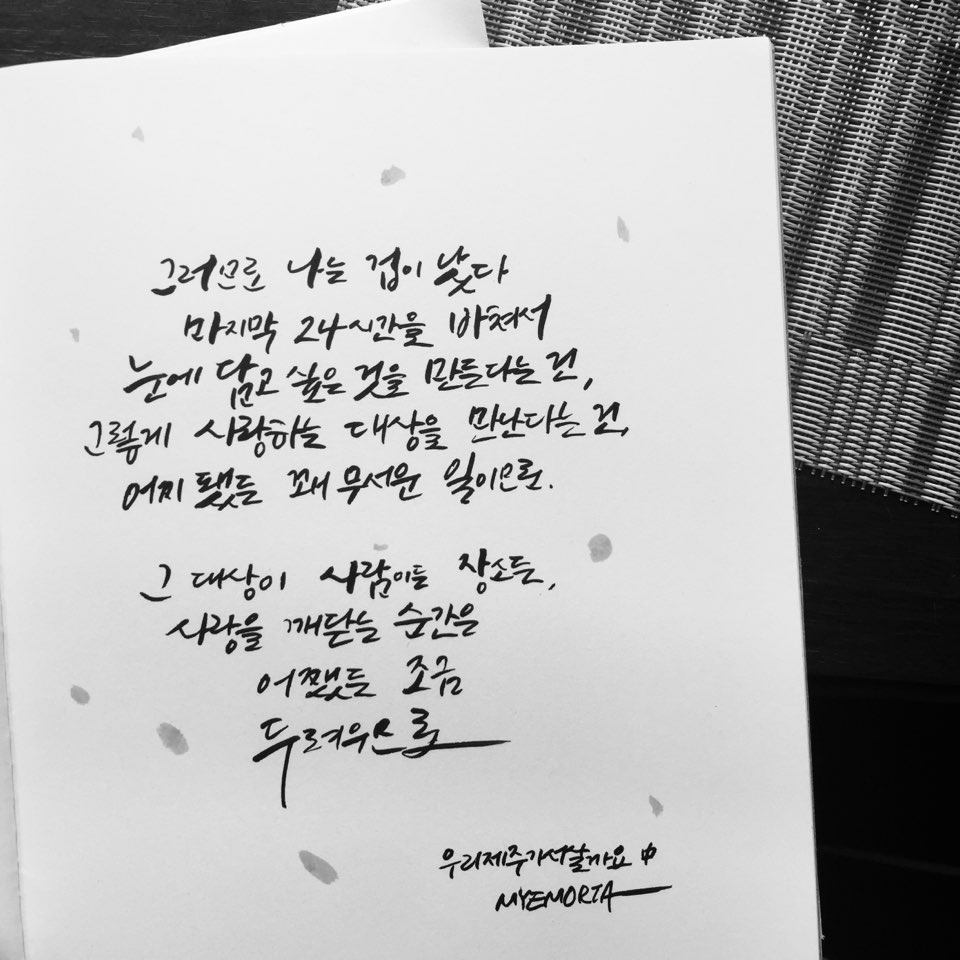 그러므로 나는 겁이 났다
마지막 24시간을 바쳐서
눈에 담고 싶은 것을 만든다는 건,
그렇게 사랑하는 대상을 만난다는 건,
어찌 됐든 꽤 무서운 일이므로.
그 대상이 사람이든 장소든,
사랑을 깨닫는 순간은
어쨌든 조금
두려우므로
우리제주가서살까요 中
MYEMORIA